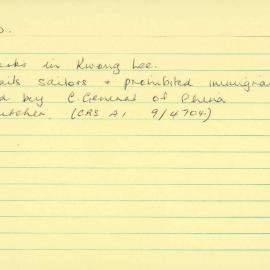 works in Kwong Lee.
sailors + prohibited immigra
by C. General of China
butcher (CRS A1 9/4704)